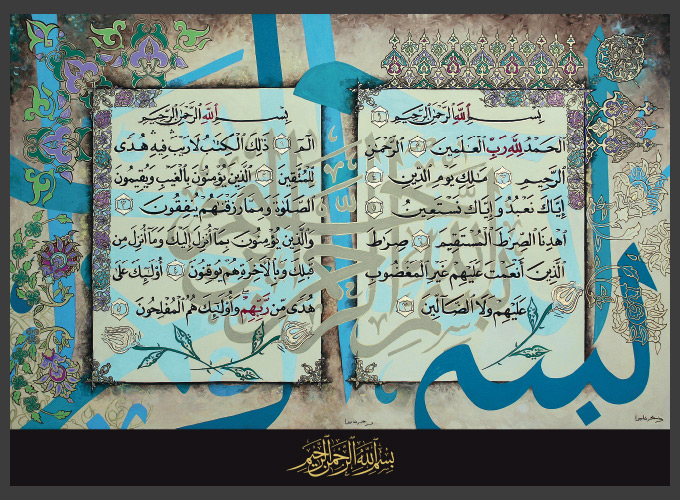 بِسْمِ اللَّهِ الرَّحْمَٰنِ الرَّحِيمِ
الْحَمْدُ لِلَّهِ رَبِّ الْعَٰلَمِينَ الرَّحْمَٰنِ
الرَّحِيمِ مَٰلِكِ يَوْمِ الدِّينِ
إِيَّاكَ نَعْبُدُ وَإِيَّاكَ نَسْتَعِينُ
اهْدِنَا الصِّرَٰطَ الْمُسْتَقِيمَ صِرَٰطَ
الَّذِينَ أَنْعَمْتَ عَلَيْهِمْ غَيْرِ الْمَغْضُوبِ
عَلَيْهِمْ وَلَا الضَّآلِّينَ
بِسْمِ اللَّهِ الرَّحْمَٰنِ الرَّحِيمِ
الٓمٓ ذَٰلِكَ الْكِتَٰبُ لَا رَيْبَ فِيهِ هُدًى
لِّلْمُتَّقِينَ الَّذِينَ يُؤْمِنُونَ بِالْغَيْبِ وَيُقِيمُونَ
الصَّلَوٰةَ وَمِمَّا رَزَقْنَٰهُمْ يُنفِقُونَ
وَالَّذِينَ يُؤْمِنُونَ بِمَآ أُنزِلَ إِلَيْكَ وَمَآ أُنزِلَ مِن
قَبْلِكَ وَبِالْآخِرَةِ هُمْ يُوقِنُونَ أُوْلَٰٓئِكَ عَلَىٰ
هُدًى مِّن رَّبِّهِمْ وَأُوْلَٰٓئِكَ هُمُ الْمُفْلِحُونَ
بسم
بِسْمِ اللَّهِ الرَّحْمَٰنِ الرَّحِيمِ